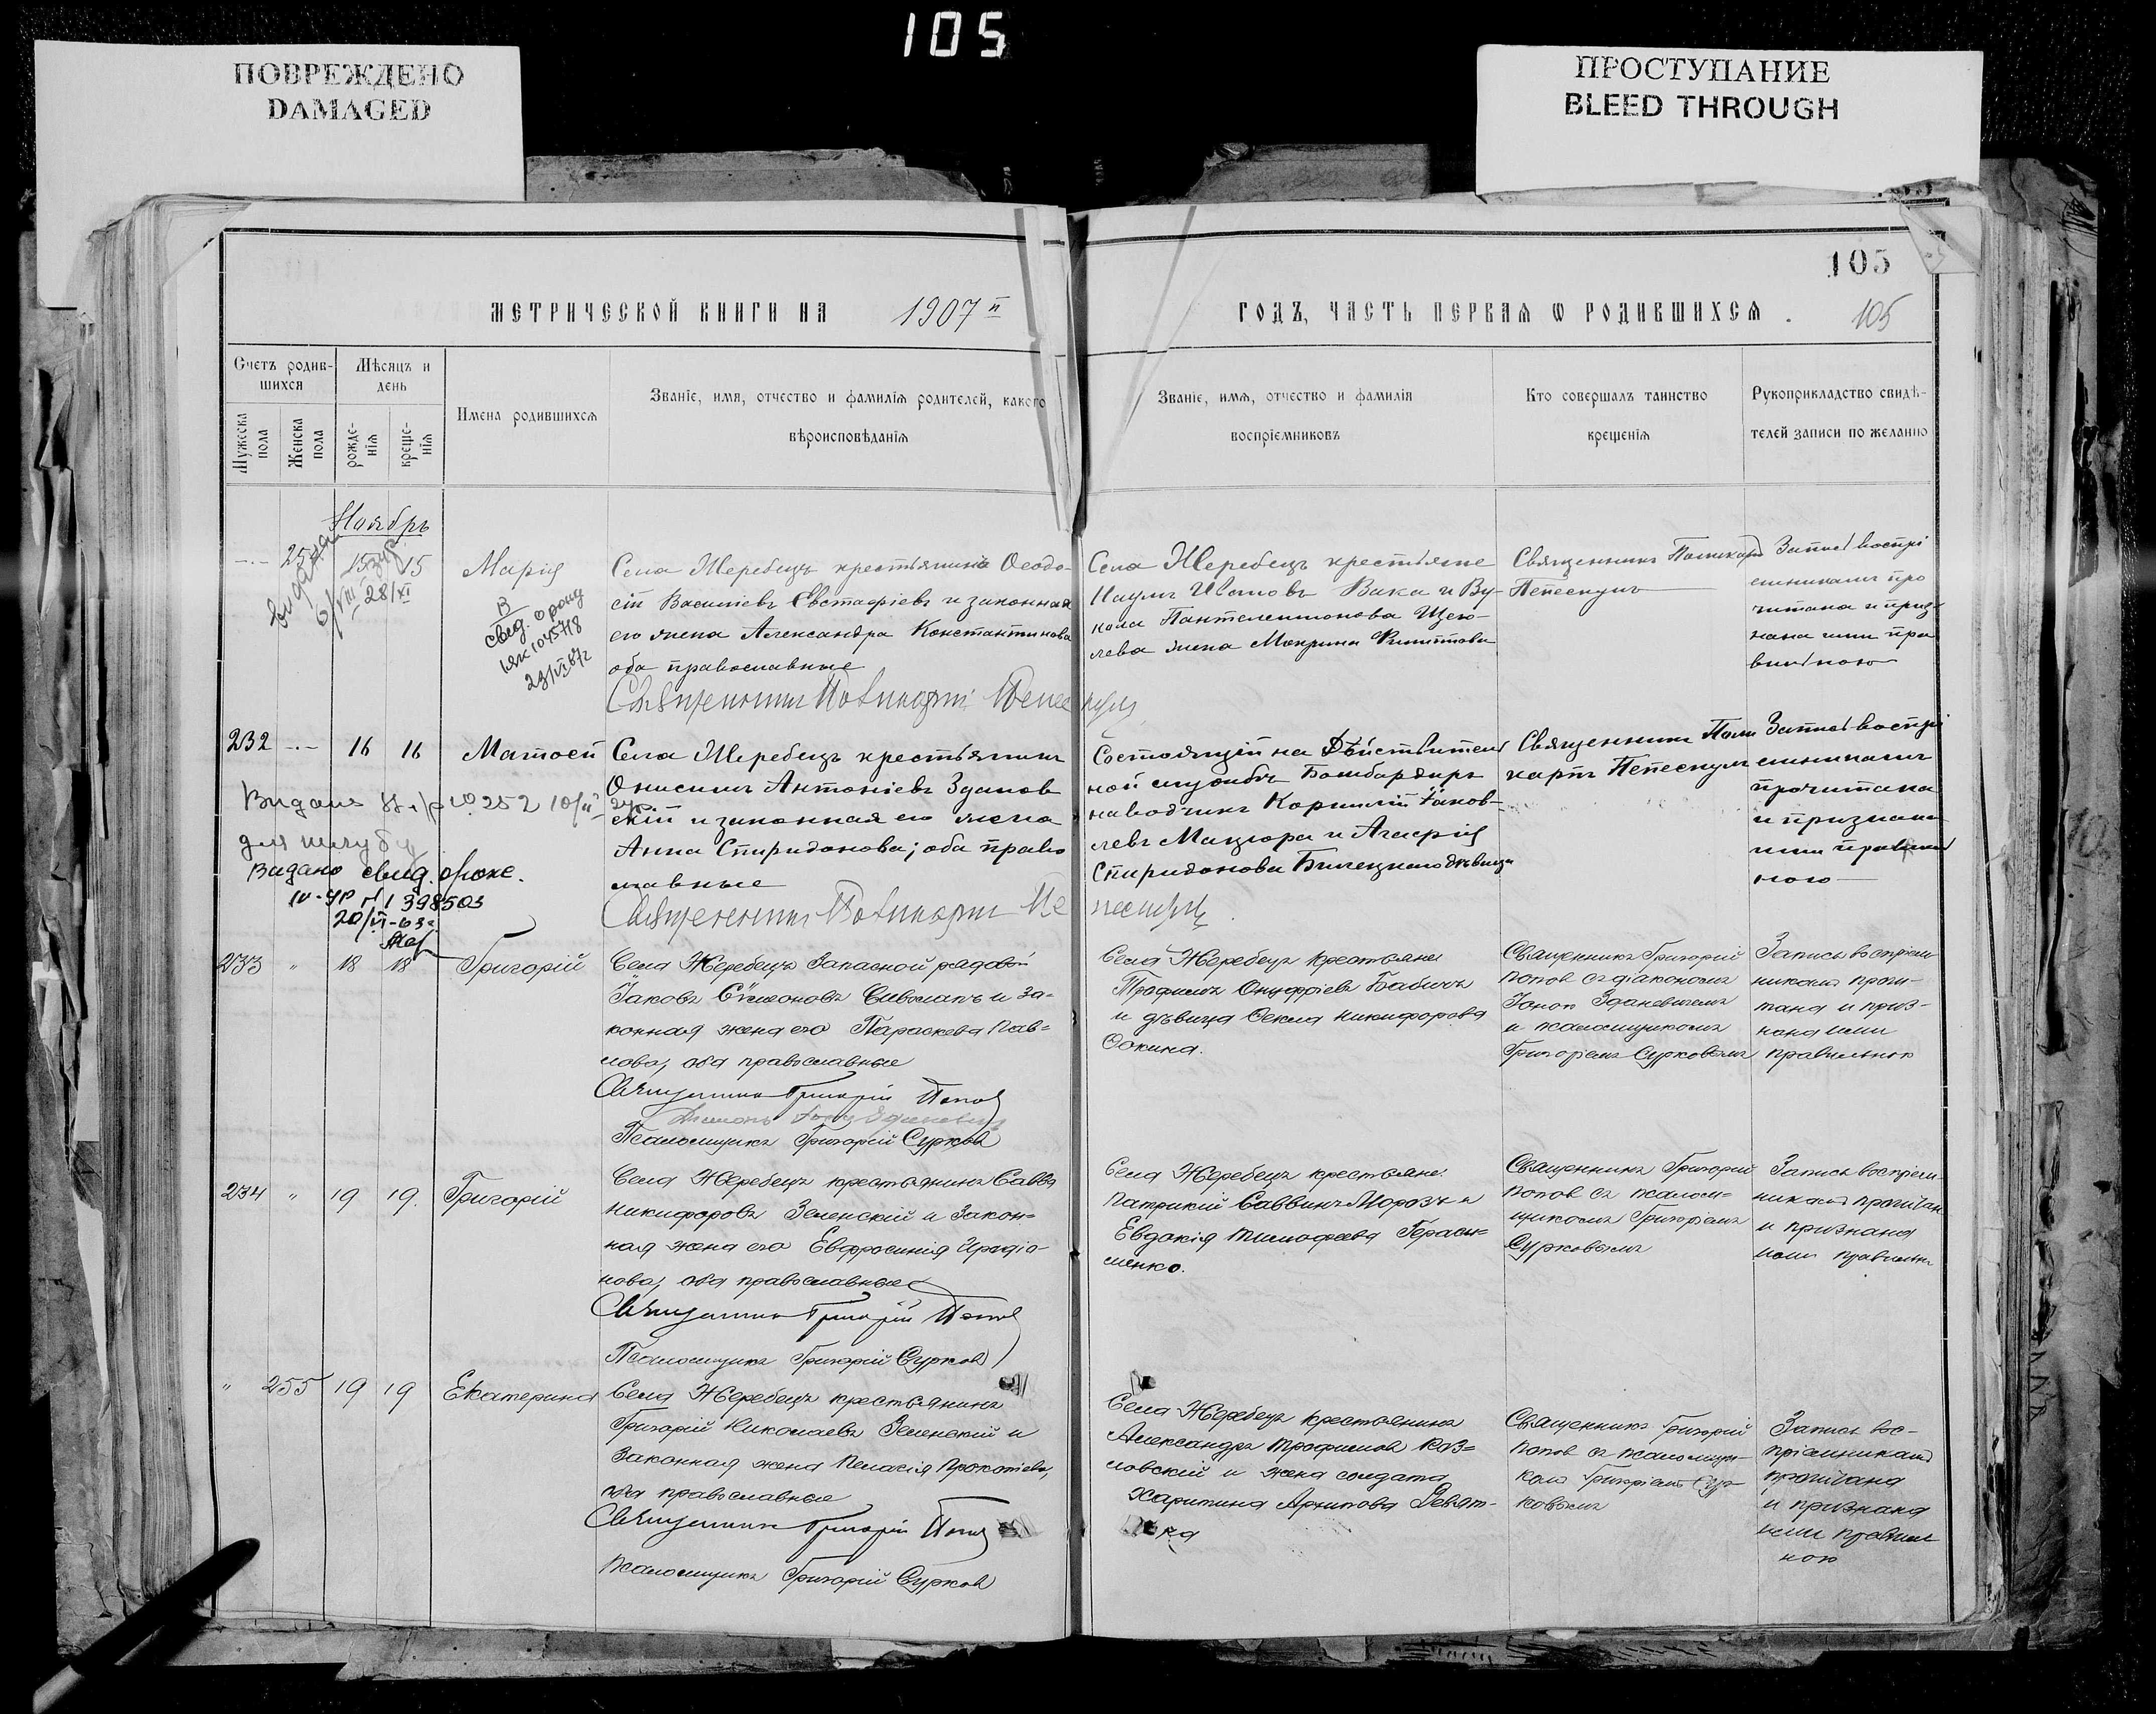 105
ПОВРЕЖДЕНО
DAMAGED
ПРОСТУПАНИЕ
BLEED THROUGH
105
МЕТРИЧЕСКОЙ КНИГИ НА 1907 й
ГОДЪ, ЧАСТЬ ПЕРВАЯ Ѡ РОДИВШИХСЯ.
105
Счетъ родив-
шихся
Мужеска пола
Женска пола
Мѣсяцъ и
день
рожде-
нія
креще-
нія
Имена родившихся
Званіе, имя, отчество и фамилія родителей, какого
вѣроисповѣданія
Званіе, имя, отчество и фамилія
воспріемниковъ
Кто совершалъ таинство
крещенія
Рукоприкладство свидѣ-
телей записи по желанію
Ноябрь
15 15
28/XI
Марія
свид. о рожд
23/VI 67г
Села Жеребецъ крестьянинъ Ѳеодо-
сій Василіевъ Евстафіевъ и законная
его жена Александра Константинова
оба православные
Священникъ Поликарпъ Пепескулъ
Села Жеребецъ крестьяне
Наумъ Ивановъ Вака и Ву-
кола Пантелеимонова Щего-
лева жена Макрина Филиппова
Священникъ Поликарпъ
Пепескулъ
Запись воспрі
емникамъ про
читана и приз-
нана ими пра
вильною
232 16 16
Матѳей
Села Жеребецъ крестьянинъ
Онисимъ Антоніевъ Зданов
скій и законная его жена
Анна Спиридонова; оба право
славные
Священникъ Поликарпъ Пепескулъ
Состоящій на Дѣйствитель
ной службѣ Бомбардиръ
наводчикъ Корнилій Іаков-
левъ Мацюра и
Спиридонова Билецкаго дѣвица
Священникъ Поли
карпъ Пепескулъ
Запись воспрі
емникамъ
прочитана
и признана
ими правиль
ною
для шлубу
Видано свид. о рожд.
IV-УР № 398503
20/VI-63г
233 " 18 18
Григорій
Села Жеребецъ Запасной рядовой
Іаковъ Симеоновъ Сиволапъ и за-
конная жена его Параскева Пав-
лова, оба православные
Священникъ Григорій Поповъ
Псаломщикъ Григорій Сурковъ
Села Жеребецъ крестьяне
Трофимъ Онуфріевъ Бабичъ
и дѣвица Ѳекла Никифорова
Ѳокина.
Священникъ Григорій
Поповъ съ діакономъ
Іоной Зданевичемъ
и псаломщикомъ
Григоріемъ Сурковымъ
Запись воспріем
никамъ прочи-
тана и приз-
нана ими
правильною
234 " 19 19.
Григорій
Села Жеребецъ крестьянинъ Савва
Никифоровъ Зеленскій и закон-
ная жена его Евфросинія Иродіо-
нова, оба православные
Священникъ Григорій Поповъ
Псаломщикъ Григорій Сурковъ
Села Жеребецъ крестьяне:
Патрикій Саввинъ Морозъ и
Евдокія Тимофеева Гераси-
менко.
Священникъ Григорій
Поповъ съ псалом-
щикомъ Григоріемъ
Сурковымъ
Запись воспріем
никамъ прочитан
и признана
ими правильн
" 255 19 19
Екатерина
Села Жеребецъ крестьянинъ
Григорій Николаевъ Зеленскій и
законная жена Пелагія Прокопіева,
оба православные
Священникъ Григорій Поповъ
Псаломщикъ Григорій Сурковъ
Села Жеребецъ крестьянинъ
Александръ Трофимовъ Коз-
ловскій и жена солдата
Харитина Архипова Девят-
ка
Священникъ Григорій
Поповъ съ псаломщи-
комъ Григоріемъ Сур
ковымъ
Запись вос-
пріемникамъ
прочитана
и признана
ими правиль
ною